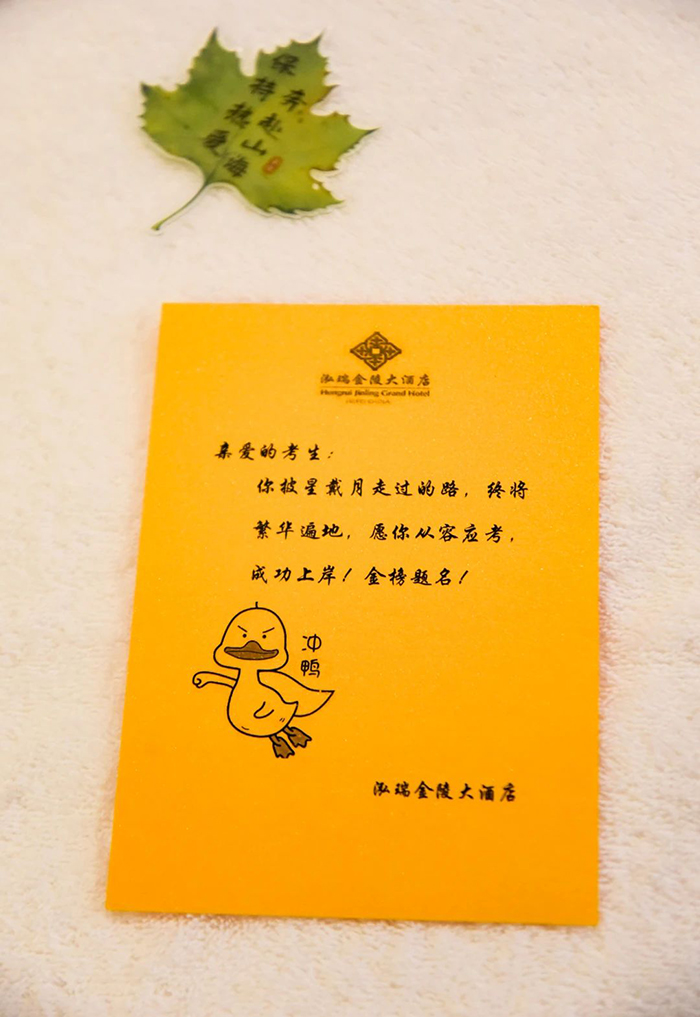 保持热爱
奔赴山海
泓瑞金陵大酒店
Hongrui Jinling Grand Hotel
亲爱的考生：
你披星戴月走过的路，终将
繁华遍地，愿你从容应考，
成功上岸！金榜题名！
冲
鸭
泓瑞金陵大酒店